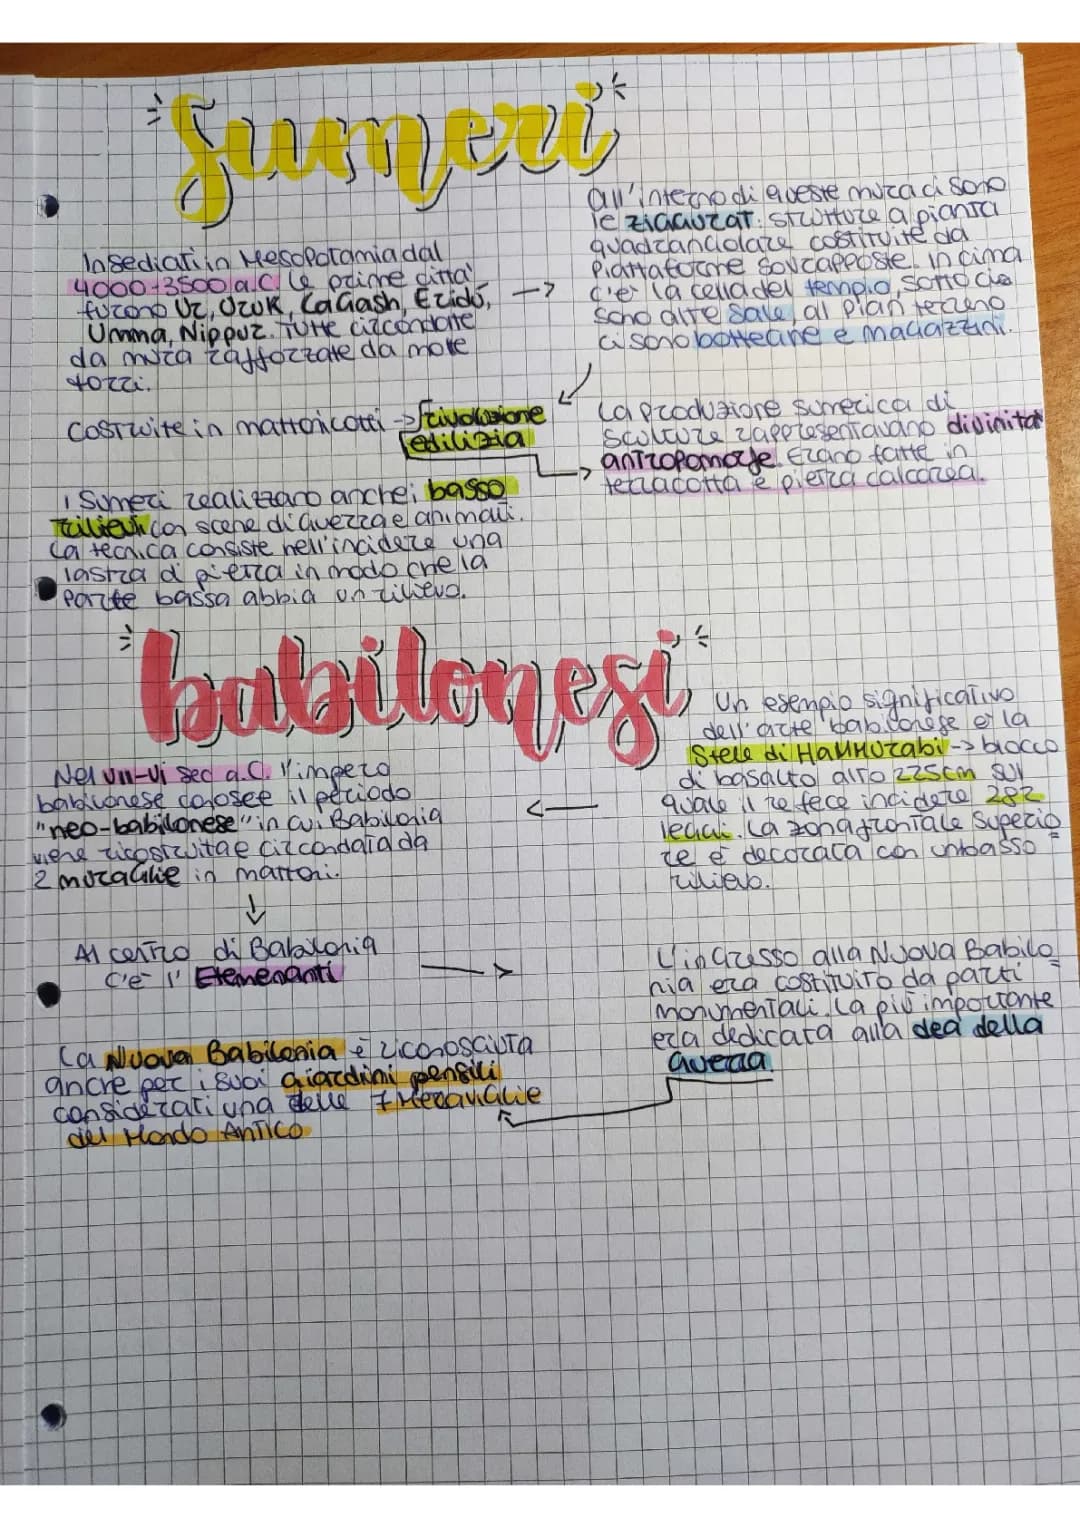 Sumeri
Insediati in Mesopotamia dal
4000-3500 a.C. le prime citta'
furono Ur, Uruk, Lagash, Eridú,
Umma, Nippur. Tutte circondate
da mura rafforzate da molte
torri.
all'interno di queste mura ci sono
le ziggurat: strutture a pianta
quadrangolare costituite da
piattaforme sovrapposte. In cima
c'e' la cella del tempio, sotto cio
sono altre sale, al pian terreno
ci sono botteghe e magazzini.
Costruite in mattoni cotti -> rivoluzione
edilizia
La produzione sumerica di
sculture rappresentavano divinità
antropomorfe. Erano fatte in
terracotta e pietra calcarea.
i Sumeri realizzano anche i basso
rilievi con scene di guerra e animali.
La tecnica consiste nell'incidere una
lastra di pietra in modo che la
parte bassa abbia un rilievo.
babilonesi
Un esempio significativo
dell'arte babilonese e' la
Stele di Hammurabi -> blocco
di basalto alto 225cm sul
quale il re fece incidere 282
leggi. La zona frontale superio
re è decorata con un basso
rilievo.
Nel VII-VI sec a.C. l'impero
babilonese conosce il periodo
"neo-babilonese" in cui Babilonia
viene ricostruita e circondata da
2 muraglie in mattoni.
Al centro di Babilonia
c'è l'Etemenanti
L'ingresso alla Nuova Babilo
nia era costituito da parti
monumentali. La più importante
era dedicata alla dea della
guerra.
La Nuova Babilonia è riconosciuta
anche per i suoi giardini pensili
considerati una delle 7 Meraviglie
del Mondo Antico